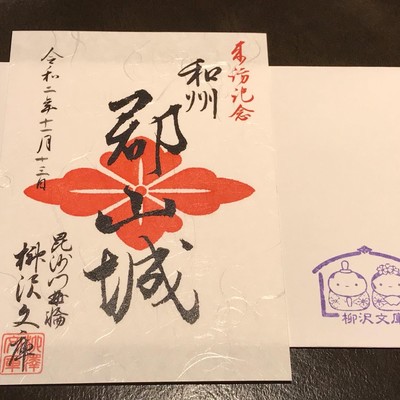 来訪記念
和州
郡山城
令和二年十一月十三日
毘沙門曲輪
柳沢文庫
柳沢文庫